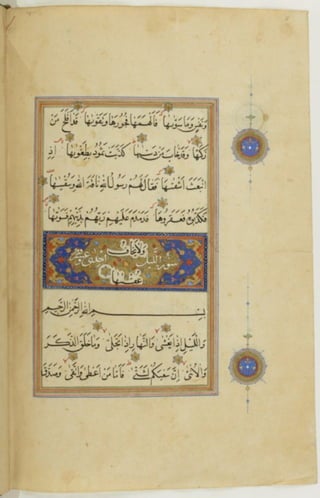 وَنَفْسٍ وَمَا سَوَّيهَا فَأَلْهَمَهَا فُجُورَهَا وَتَقْوَيهَا قَدْ أَفْلَحَ مَنْ
زَكَّيهَا وَقَدْ خَابَ مَنْ دَسَّيهَا كَذَّبَتْ ثَمُودُ بِطَغْوَيهَا إِذِ
انْبَعَثَ أَشْقَيهَا فَقَالَ لَهُمْ رَسُولُ اللَّهِ نَاقَةَ اللَّهِ وَسُقْيَيهَا
فَكَذَّبُوهُ فَعَقَرُوهَا فَدَمْدَمَ عَلَيْهِمْ رَبُّهُمْ بِذَنْبِهِمْ فَسَوَّيهَا
وَلَا يَخَافُ
سورة الليل احدى
عُقْبَيهَا
بِسْمِ اللَّهِ الرَّحْمَنِ الرَّحِيمِ
وَاللَّيْلِ إِذَا يَغْشَى وَالنَّهَارِ إِذَا تَجَلَّى وَمَا خَلَقَ الذَّكَرَ
وَالْأُنْثَى إِنَّ سَعْيَكُمْ لَشَتَّى فَأَمَّا مَنْ أَعْطَى وَاتَّقَى وَصَدَّقَ